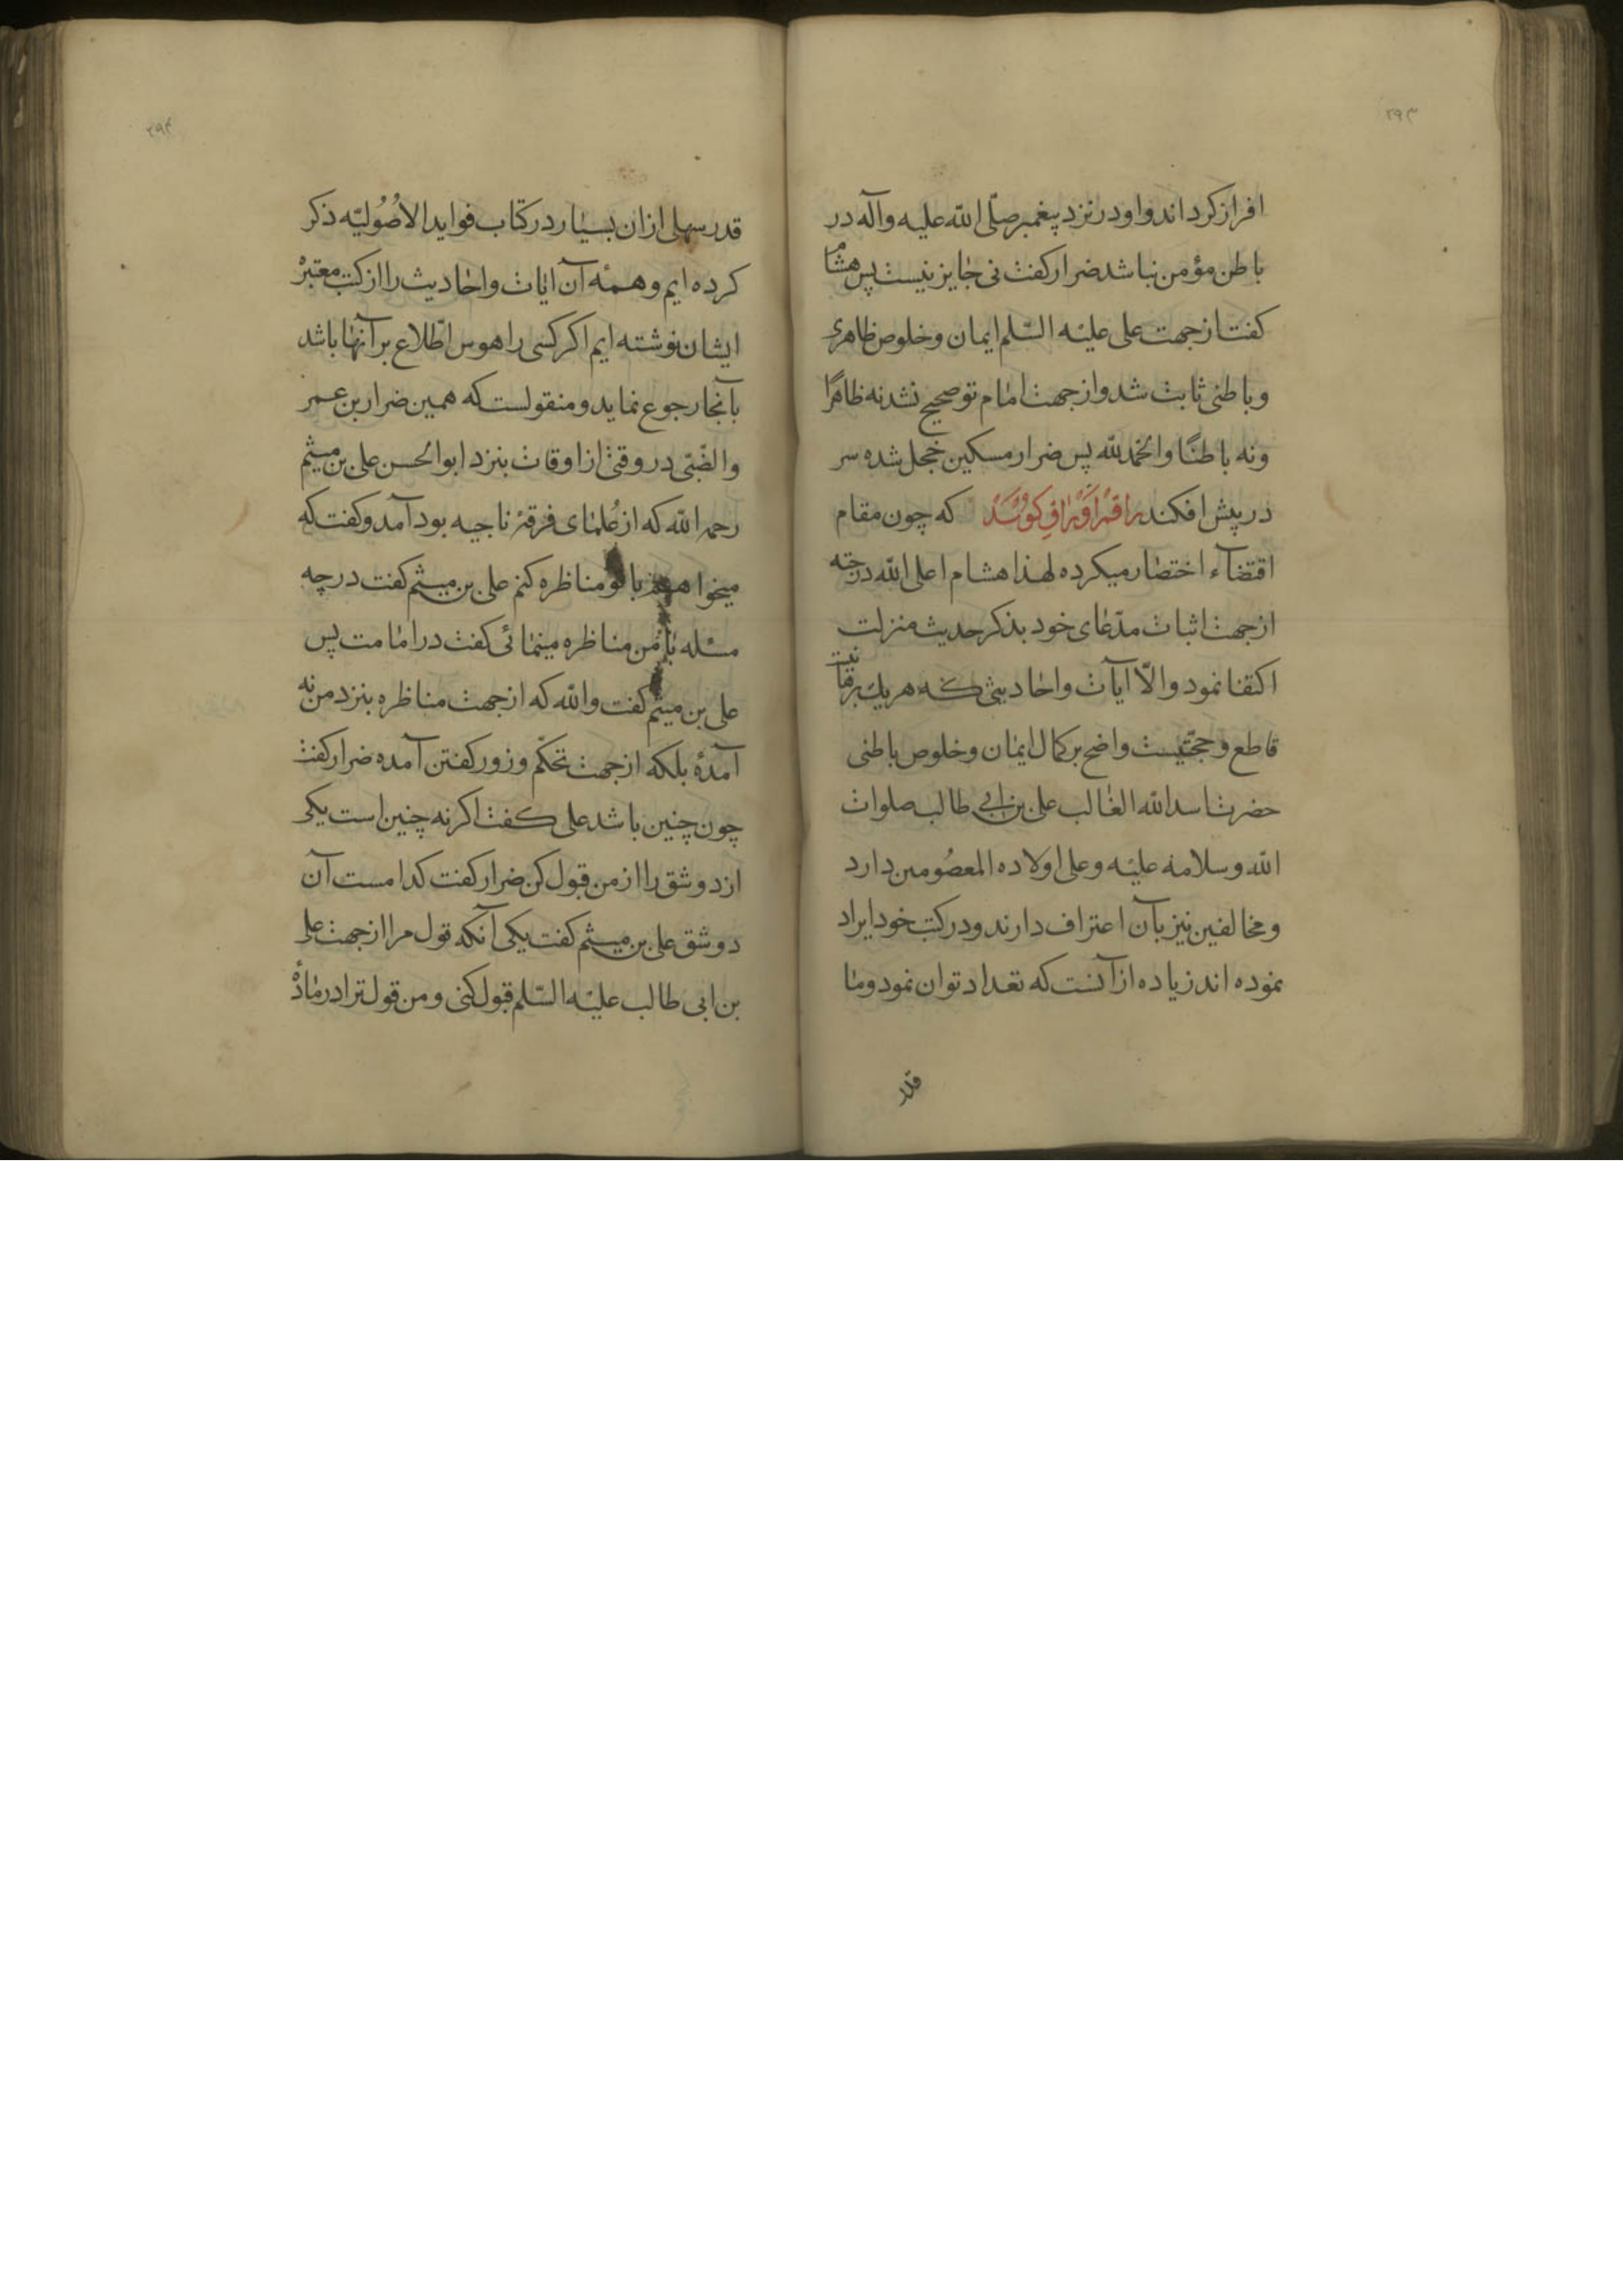 ۲۹۳
افراز کرداند و او در نزد پیغمبر صلّی الله علیه وآله در
باطن مؤمن نباشد ضرار کفت نی جایز نیست پس هشام
کفت از جهت علی علیه السّلم ایمان و خلوص ظاهری
و باطنی ثابت شد و از جهت امام تو صحیح نشد نه ظاهرًا
و نه باطنًا والحمد لله پس ضرار مسکین خجل شده سر
در پیش افکند راقم اوراق کوید که چون مقام
اقتضآء اختصار میکرده لهذا هشام اعلی الله درجته
از جهت اثبات مدّعای خود بذکر حدیث منزلت
اکتفا نمود والّا آیات و احادیثی که هر یک برهانیست
قاطع و حجّتیست واضح بر کمال ایمان و خلوص باطنی
حضرت اسد الله الغالب علی بن ابی طالب صلوات
الله وسلامه علیه وعلی اولاده المعصُومین دارد
و مخالفین نیز بآن اعتراف دارند و در کتب خود ایراد
نموده اند زیاده از آنست که تعداد توان نمود و ما
قدر
۲۹۴
قدر سهلی از ان بسیار در کتاب فواید الاصُولیّه ذکر
کرده ایم و همهٔ آن ایات و احادیث را از کتب معتبر
ایشان نوشته ایم اکر کسی را هوس اطّلاع بر آنها باشد
بآنجا رجوع نماید و منقولست که همین ضرار بن عمر
والضّبّی در وقتی از اوقات بنزد ابوالحسن علی بن میثم
رحمه الله که از عُلمای فرقهٔ ناجیه بود آمد و کفت که
میخواهم با تو مناظره کنم علی بن میثم کفت در چه
مسئله با من مناظره مینمائی کفت در امامت پس
علی بن میثم کفت والله که از جهت مناظره بنزد من نه
آمدهٔ بلکه از جهت تحکّم و زور کفتن آمده ضرار کفت
چون چنین باشد علی کفت اکر نه چنین است یکی
از دو شق را از من قبول کن ضرار کفت کدامست آن
دو شق علی بن میثم کفت یکی آنکه قول مرا از جهت علی
بن ابی طالب علیه السّلم قبول کنی و من قول ترا در مادّهٔ